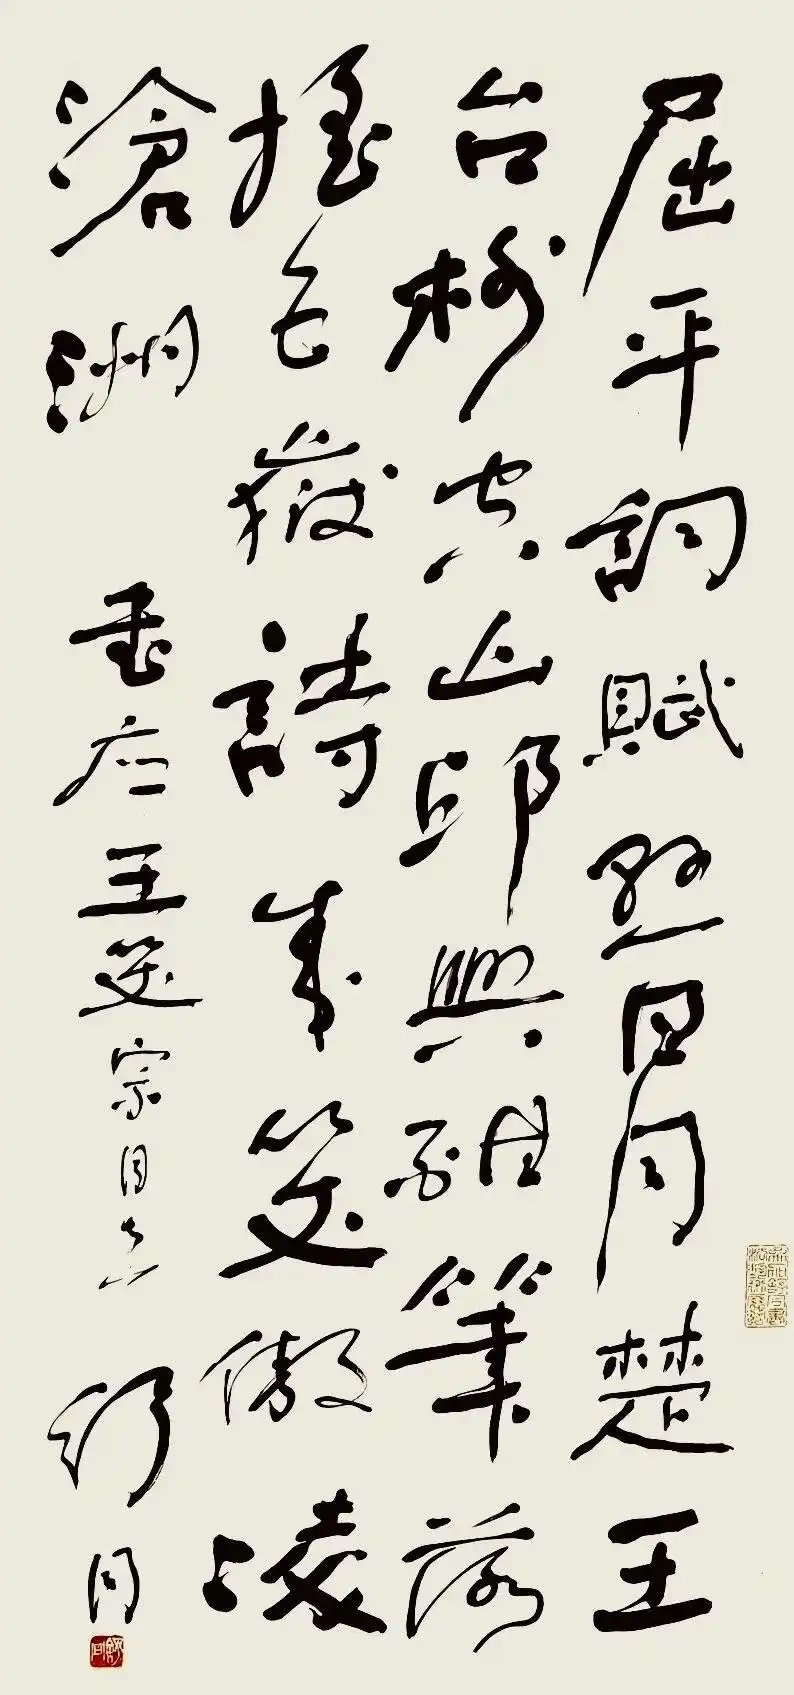 屈平詞賦懸日月楚王
台榭空山邱興酣筆落
搖五嶽詩成笑傲凌
滄洲 書應王笑宗同志 舒同